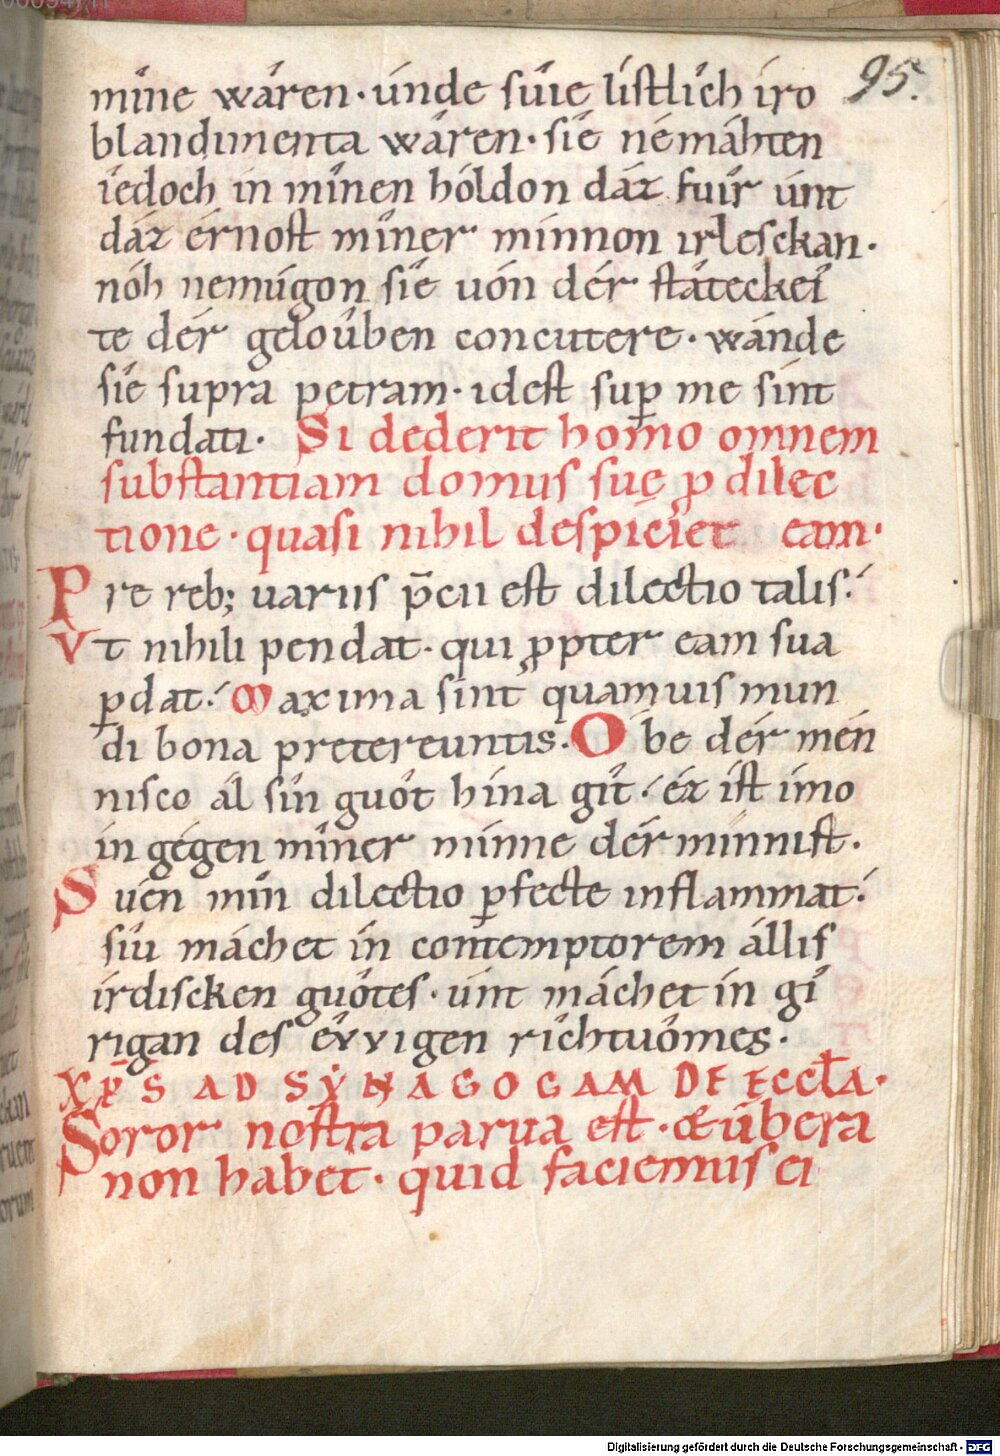 95.
mîne wâren · únde suîe lístlîch íro
blandimenta wâren · sîe nemáhten
îedoch in mînen hóldon dáz fûir únt
dáz érnost mîner mínnon irlesckan ·
nóh nemúgon sîe uón dér stâteckeî
te dér gelôuben concutere · wánde
sîe supra petram · idest sup̱ me sínt
fundati · Si dederit homo omnem
substantiam domus suę p̱ dilec
tione · quasi nihil despiciet eam ·
Pre reb; uariis p̄cii est dilectio talis ·
Vt nihili pendat · qui ꝓpter eam sua
ꝑdat · Maxima sint quamuis mun
di bona pretereuntis · Obe dér mén
nisco ál sîn guôt hína gît · éz ist ímo
in gégen mîner mínne dér mínnist ·
Suén mîn dilectio ꝑfecte inflammat ·
siu máchet ín contemptorem álles
írdiscken guôtes · únt máchet in gî
rigan des êvvigen rîchtuômes ·
XP̄S AD SYNAGOGAM DE ECCLA ·
Soror nostra parua est · & úbera
non habet · quid faciemus ei
Digitalisierung gefördert durch die Deutsche Forschungsgemeinschaft - DFG